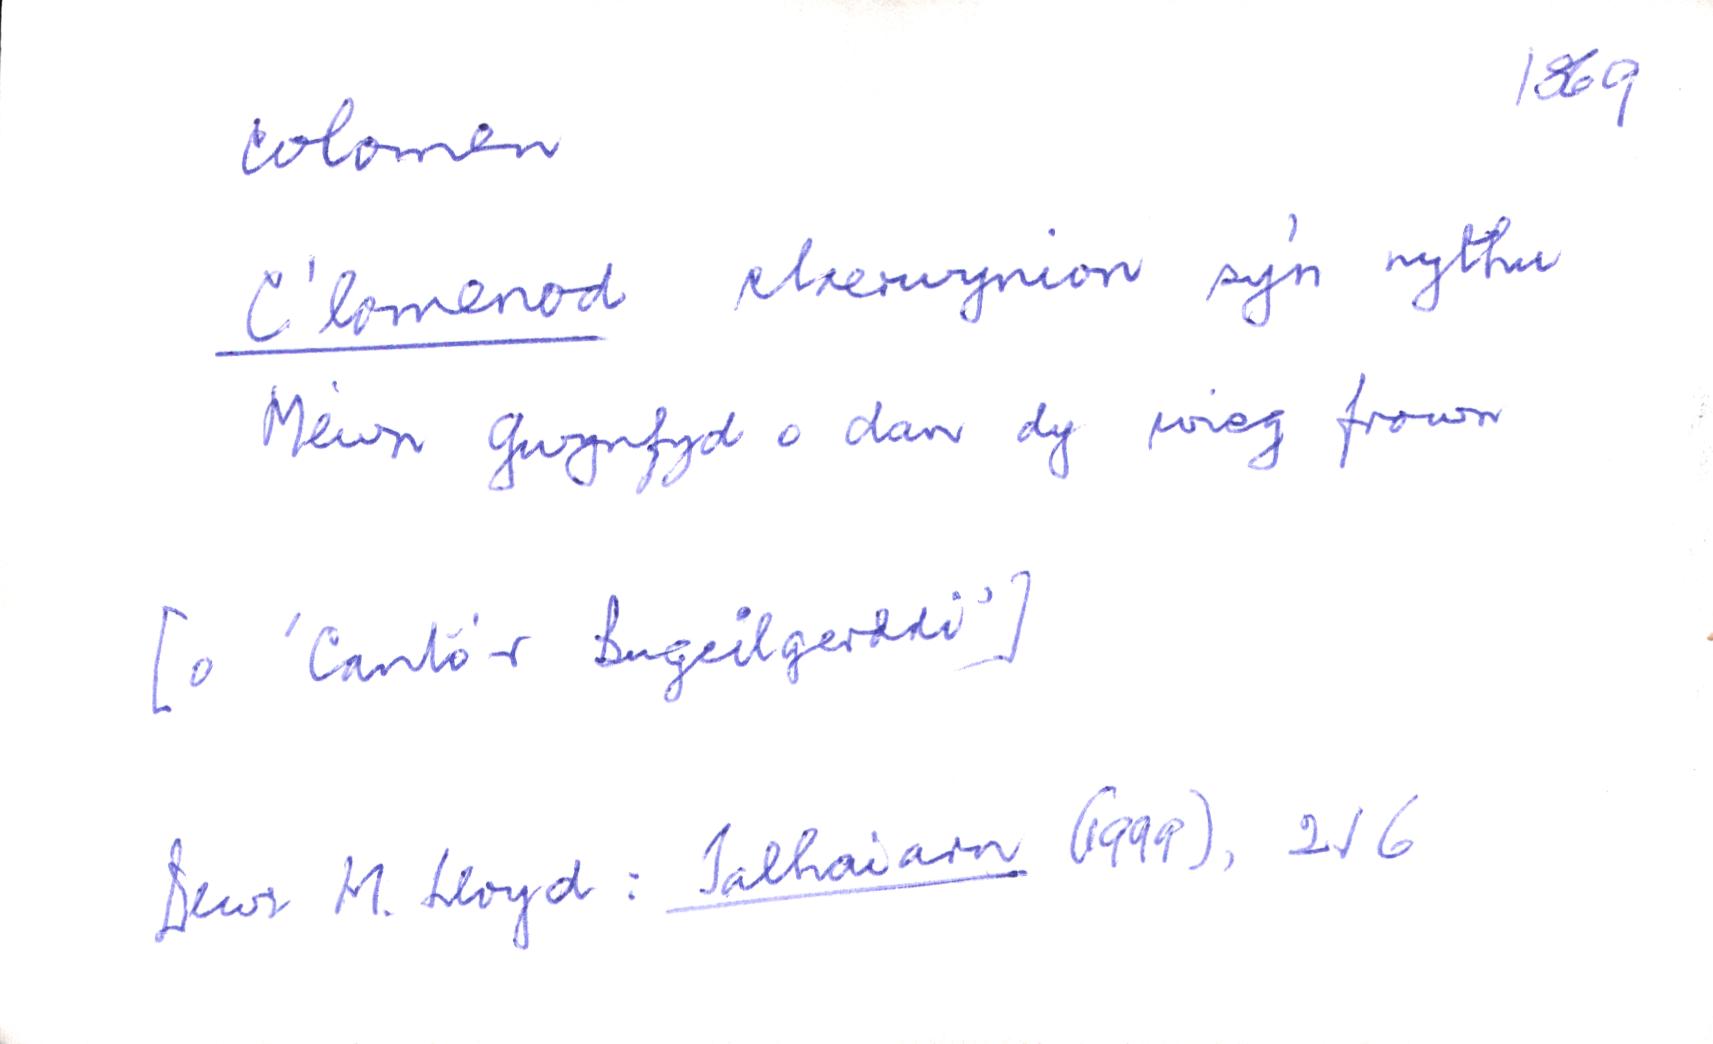 1869
colomen
C'lomenod claerwynion sy'n nythu
Mewn gwynfyd o dan dy wisg frown
[o 'Canlo'r Bugeilgerddi']
Dewi M. Lloyd: Talhaiarn (1999), 216